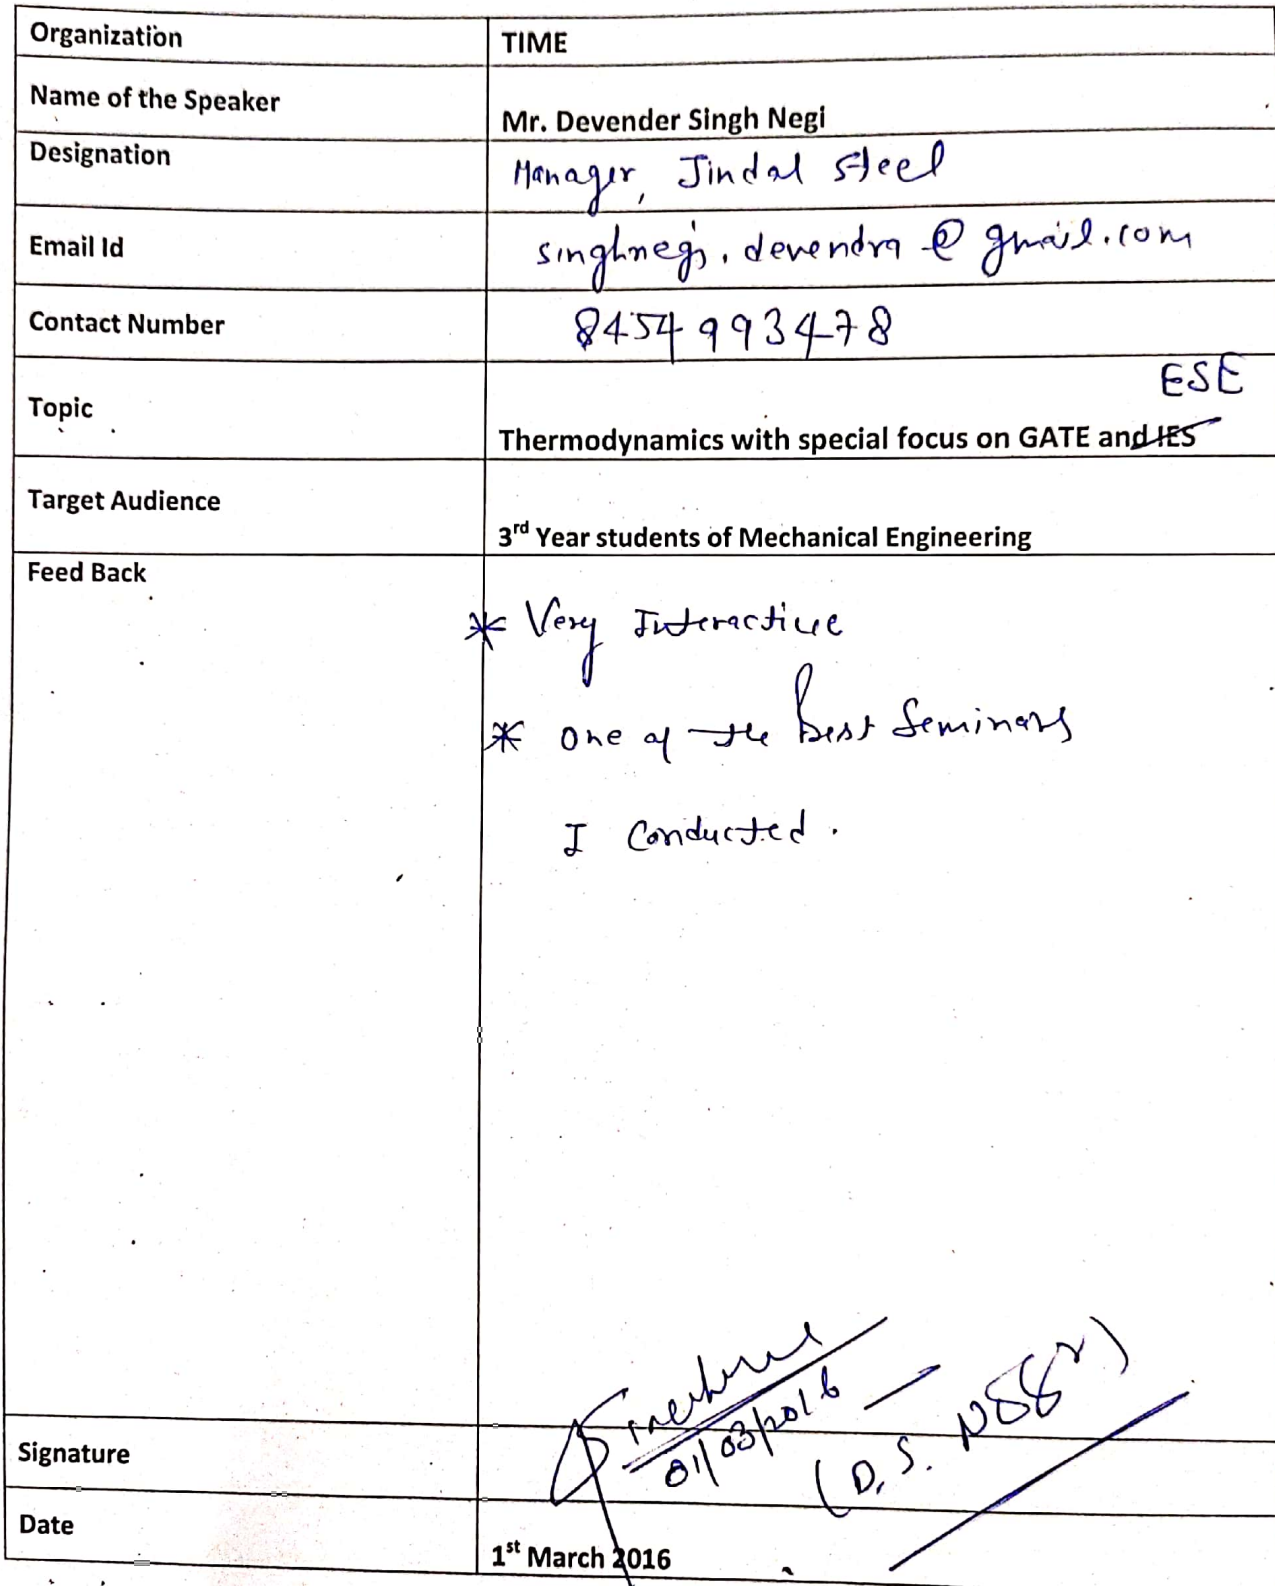 Organization TIME
Name of the Speaker Mr. Devender Singh Negi
Designation Manager, Jindal Steel
Email Id singhnegi.devendra@gmail.com
Contact Number 8454993478
ESE
Topic Thermodynamics with special focus on GATE and IES
Target Audience 3rd Year students of Mechanical Engineering
Feed Back
* Very Interactive
* One of the best Seminars
I Conducted.
01/03/2016
Signature (D.S. Negi)
Date 1st March 2016